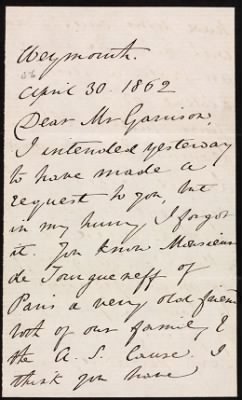 Weymouth.
April 30. 1862
Dear Mr Garrison,
I intended yesterday
to have made a
request to you, but
in my hurry I forgot
it. You know Monsieur
de Tourgueneff of
Paris a very old friend
both of our family &
the A. S. Cause. I
think you have